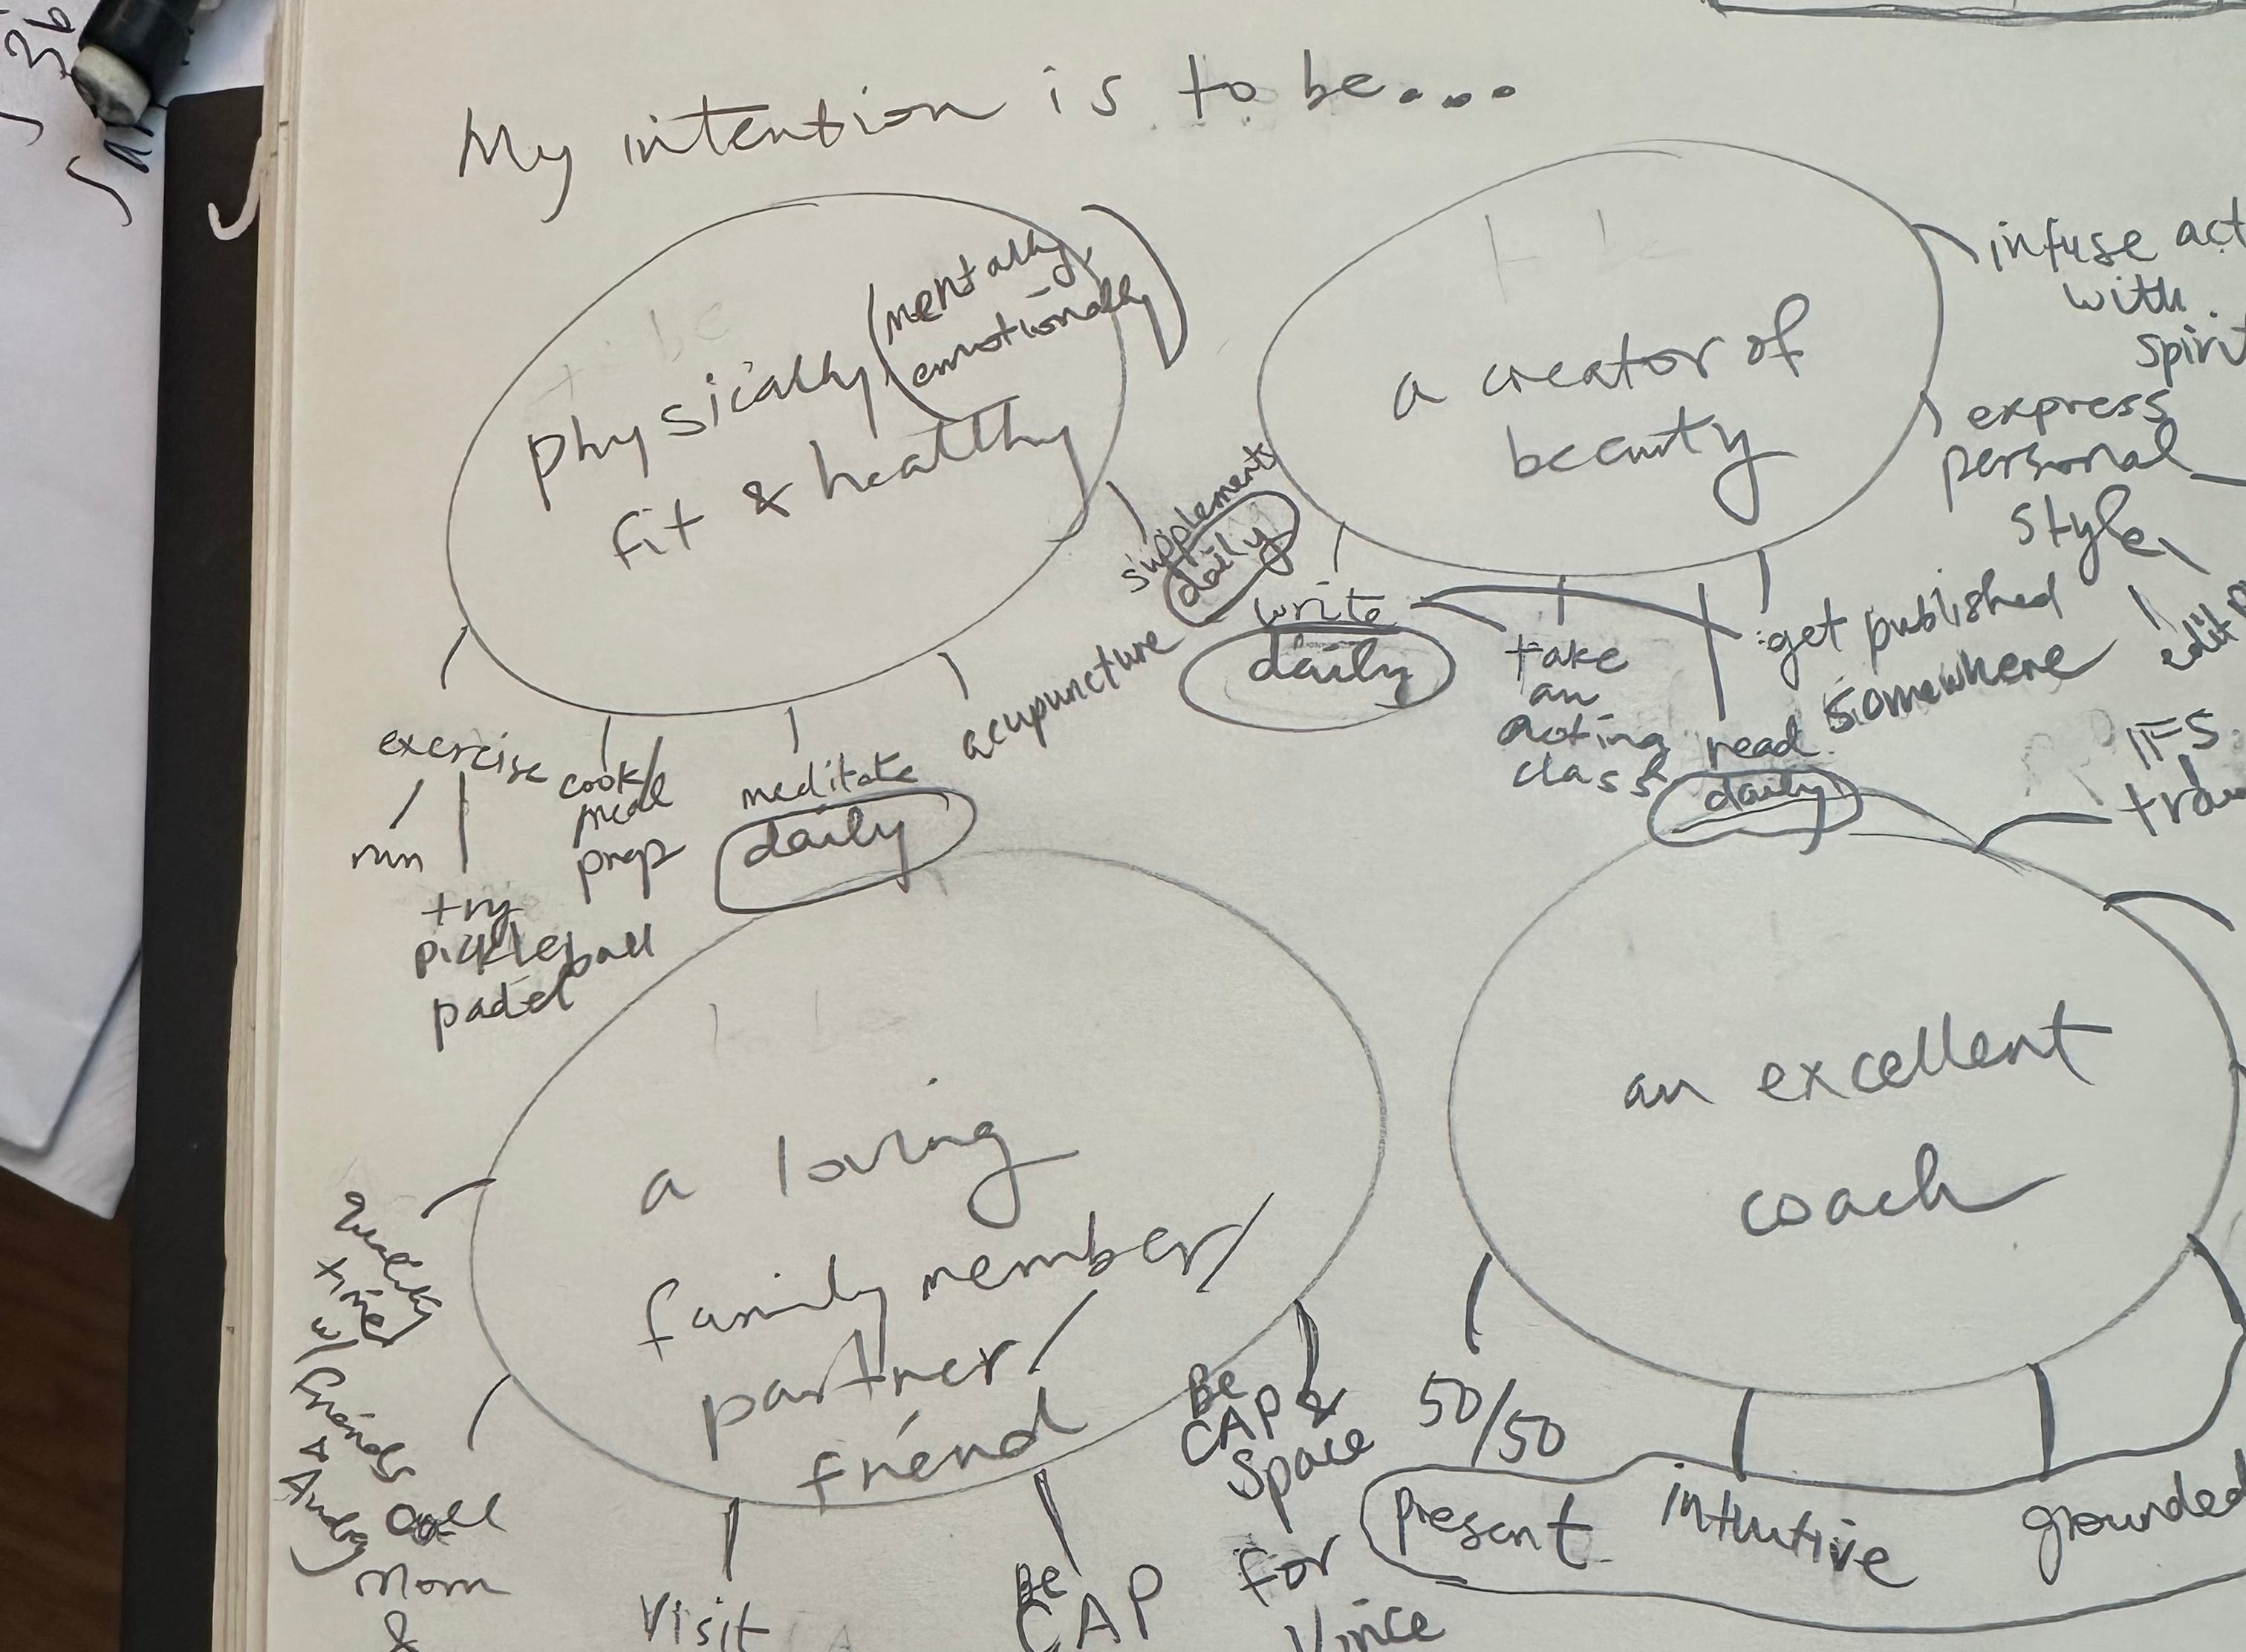 My intention is to be...
physically (mentally,
emotionally)
fit & healthy
exercise
run
try
pickleball
padel
cook/
meal
prep
meditate
daily
acupuncture
supplements
daily
a creator of
beauty
write
daily
take
an
acting
class
read
daily
get published
somewhere
infuse act
with
spirit
express
personal
style
edit
IFS
a loving
family member/
partner/
friend
quality
time
w/ friends
&
Andy
call
Mom
&
Visit
Be
CAP
Be
CAP &
Space
for
Vince
an excellent
coach
50/50
present
intuitive
grounded